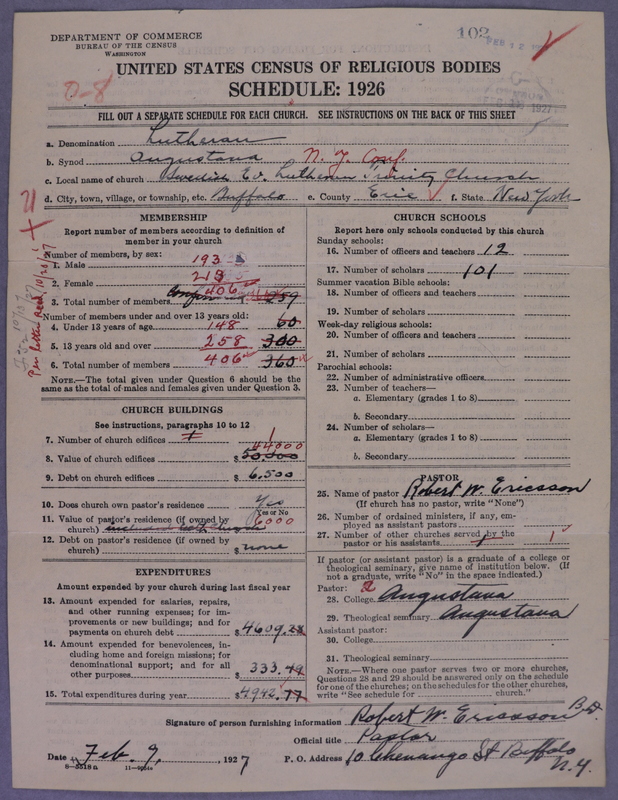 DEPARTMENT OF COMMERCE
BUREAU OF THE CENSUS
WASHINGTON
102
FEB 12
UNITED STATES CENSUS OF RELIGIOUS BODIES
SCHEDULE: 1926
0-8
FILL OUT A SEPARATE SCHEDULE FOR EACH CHURCH. SEE INSTRUCTIONS ON THE BACK OF THIS SHEET
a. Denomination Lutheran
b. Synod Augustana N. Y. Conf.
c. Local name of church Swedish Ev. Lutheran Trinity Church
d. City, town, village, or township, etc. Buffalo e. County Erie f. State New York
MEMBERSHIP
Report number of members according to definition of
member in your church
Number of members, by sex:
1. Male 193
2. Female 213
3. Total number of members 406 259
Number of members under and over 13 years old:
4. Under 13 years of age 148 60
5. 13 years old and over 258 300
6. Total number of members 406 360
NOTE.—The total given under Question 6 should be
same as the total of males and females given under Question 3.
Per letter Recd 10/20/27
CHURCH BUILDINGS
See instructions, paragraphs 10 to 12
7. Number of church edifices 1
44000
8. Value of church edifices $ 50,000
9. Debt on church edifices $ 6,500
10. Does church own pastor's residence? Yes
Yes or No
11. Value of pastor's residence (if owned by 6000
church) included with church
12. Debt on pastor's residence (if owned by
church) $ none
EXPENDITURES
Amount expended by your church during last fiscal year
13. Amount expended for salaries, repairs,
and other running expenses; for im-
provements or new buildings; and for
payments on church debt $ 4609.28
14. Amount expended for benevolences, in-
cluding home and foreign missions; for
denominational support; and for all
other purposes 333.49
15. Total expenditures during year $ 4942.77
CHURCH SCHOOLS
Report here only schools conducted by this church
Sunday schools:
16. Number of officers and teachers 12
17. Number of scholars 101
Summer vacation Bible schools:
18. Number of officers and teachers
19. Number of scholars
Week-day religious schools:
20. Number of officers and teachers
21. Number of scholars
Parochial schools:
22. Number of administrative officers
23. Number of teachers—
a. Elementary (grades 1 to 8)
b. Secondary
24. Number of scholars—
a. Elementary (grades 1 to 8)
b. Secondary
PASTOR
25. Name of pastor Robert W. Ericsson
(If church has no pastor, write "None")
26. Number of ordained ministers, if any, em-
ployed as assistant pastors
27. Number of other churches served by the
pastor or his assistants 1
If pastor (or assistant pastor) is a graduate of a college or
theological seminary, give name of institution below. (If
not a graduate, write "No" in the space indicated.)
Pastor: 2
28. College Augustana
29. Theological seminary Augustana
Assistant pastor:
30. College
31. Theological seminary
NOTE.—Where one pastor serves two or more churches,
Questions 28 and 29 should be answered only on the schedule
for one of the churches; on the schedules for the other churches,
write "See schedule for church."
Signature of person furnishing information Robert W. Ericsson B.D.
Official title Pastor
Date Feb. 9, 1927 P. O. Address 10 Chenango St Buffalo
N.Y.